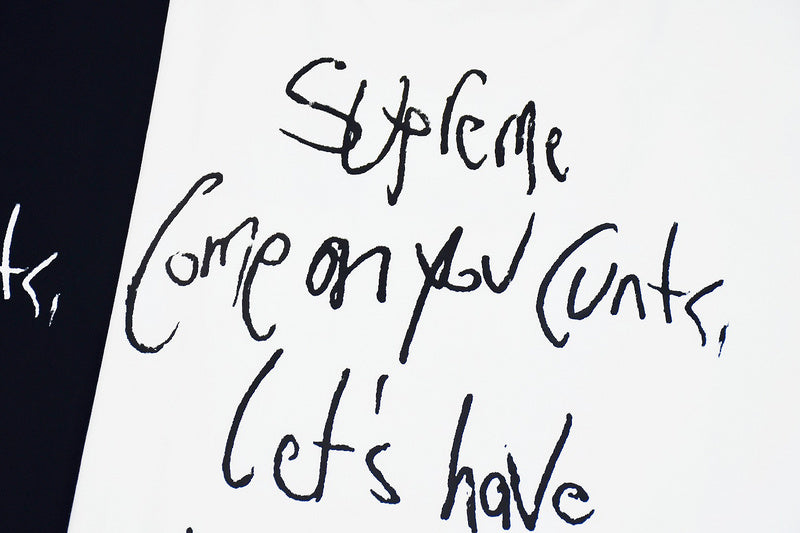 Supreme
Come on you cunts,
let's have
ts,